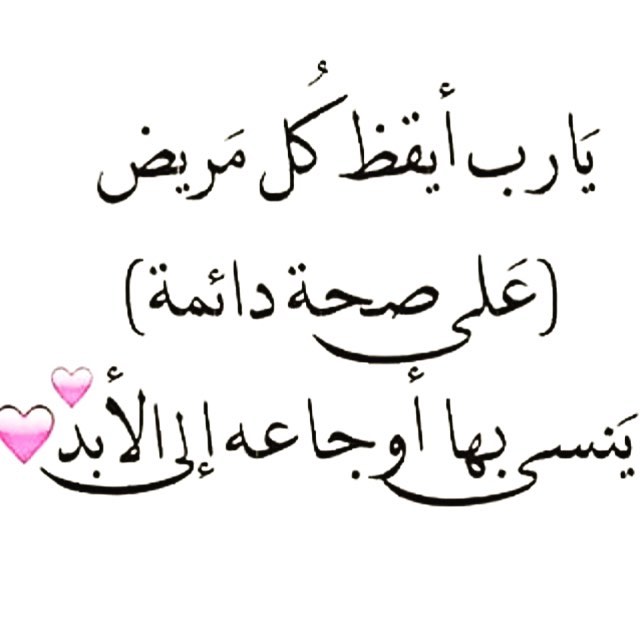 يَارب أيقظ كُل مَريض
(عَلى صحة دائمة)
يَنسى بها أوجاعه إلى الأبد💕